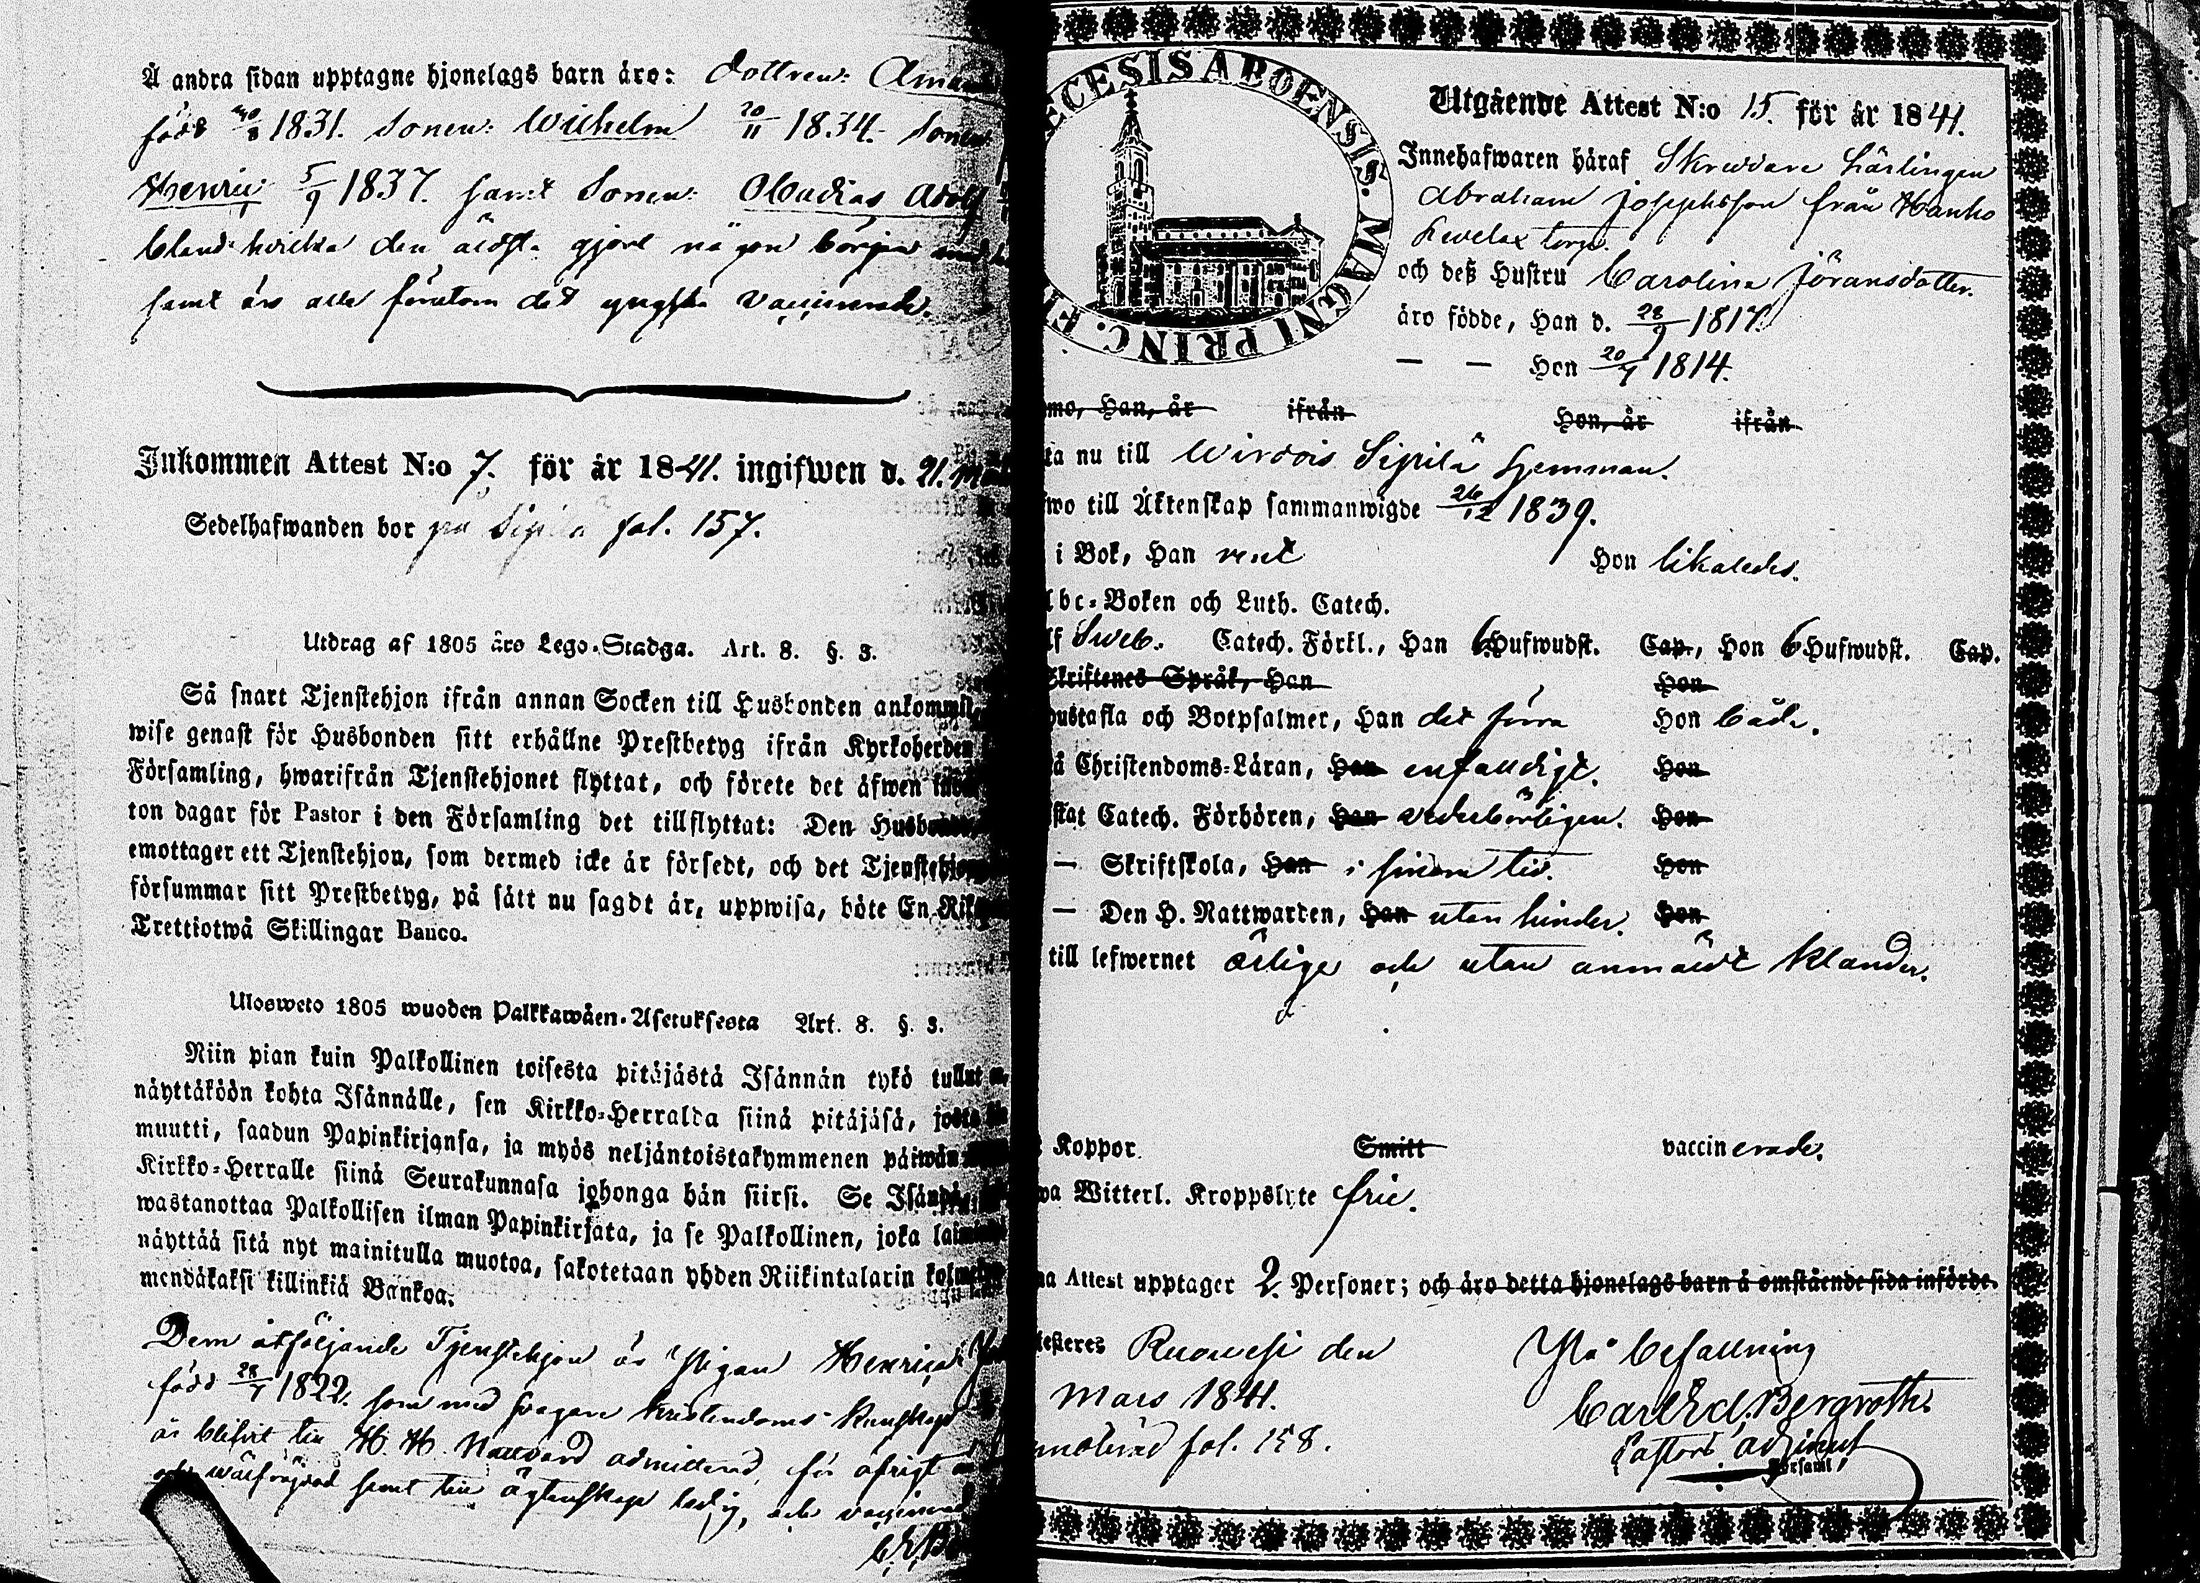 Å andra sidan upptagne hjonelags barn äro: dottren: Aman
född 1831. Sonen: Wilhelm 20/11 1834. Sonen
Henric 5/9 1837. samt Sonen: Obadias Adolf
bland hvilka den äldsta gjort någon början med
samt äro alla förutom det yngsta vaccinerade.
Inkommen Attest N:o 7. för år 1841. ingifwen d. 21. Mars
Sedelhafwanden bor på Sipilä fol. 157.
Utdrag af 1805 års Lego-Stadga. Art. 8. §. 3.
Så snart Tjenstehjon ifrån annan Socken till Husbonden ankommit,
wise genast för Husbonden sitt erhållne Prestbetyg ifrån Kyrkoherden
Församling, hwarifrån Tjenstehjonet flyttat, och förete det äfwen
ton dagar för Pastor i den Församling det tillflyttat: Den Husbonde,
emottager ett Tjenstehjon, som dermed icke är försedt, och det Tjenstehjon
försummar sitt Prestbetyg, på sätt nu sagdt är, uppwisa, böte En Rik
Trettiotwå Skillingar Banco.
Ulosweto 1805 wuoden Palkkawäen-Asetuksesta Art. 8. §. 3.
Niin pian kuin Palkollinen toisesta pitäjästä Isännän tykö tullut
näyttäköön kohta Isännälle, sen Kirkko-Herralda siinä pitäjäsä, josta
muutti, saadun Papinkirjansa, ja myös neljäntoistakymmenen päiwän
Kirkko-Herralle siinä Seurakunnasa johonga hän siirsi. Se Isändä,
wastanottaa Palkollisen ilman Papinkirjata, ja se Palkollinen, joka laim
näyttää sitä nyt mainitulla muotoa, sakotetaan yhden Riikintalarin kolme
mendäkaksi killinkiä Bankoa.
Dem åtföljande Tjenstehjon är Pigan Henrica
född 28/7 1822. som med svagare kristendoms kunskap
är blefvit till H. H. Nattvard admitterad, för öfrigt
och wälfräjdad samt till ägtenskap ledig, och vaccinerad
DIOECESIS ABOENSIS. MAGNI PRINC. F
Utgående Attest N:o 15. för år 1841.
Innehafwaren häraf Skreddare Lärlingen
Abraham Josephsson från Hanho
Kevelax torp.
och deß Hustru Carolina Jöransdotter.
äro födde, Han d. 28/9 1817.
— — Hon 20/4 1814.
mo, Han, år ifrån Hon, år ifrån
ta nu till Wirdois Sipilä hemman.
wo till Äktenskap sammanwigde 26/12 1839.
i Bok, Han rent Hon likaledes.
bc-Boken och Luth. Catech.
lf Sweb. Catech. Förkl., Han 6 Hufwudst. Cap., Hon 6 Hufwudst. Cap.
Skriftenes Språk, Han Hon
ustafla och Botpsalmer, Han det förra Hon både.
å Christendoms-Läran, Han enfaldigt. Hon
stat Catech. Förhören, Han vederbörligen. Hon
— Skriftskola, Han i sinom tid. Hon
— Den H. Nattwarden, Han utan hinder. Hon
till lefwernet ärlige och utan anmäldt klander.
Koppor Smitt vaccinerade.
wa Witterl. Kroppslyte frie.
na Attest upptager 2. Personer; och äro detta hjonelags barn å omstående sida införde.
testeres Ruovesi den På befallning
Mars 1841. Carl Ed. Bergroth.
fol. 158. Pastors adjunct
Församl.